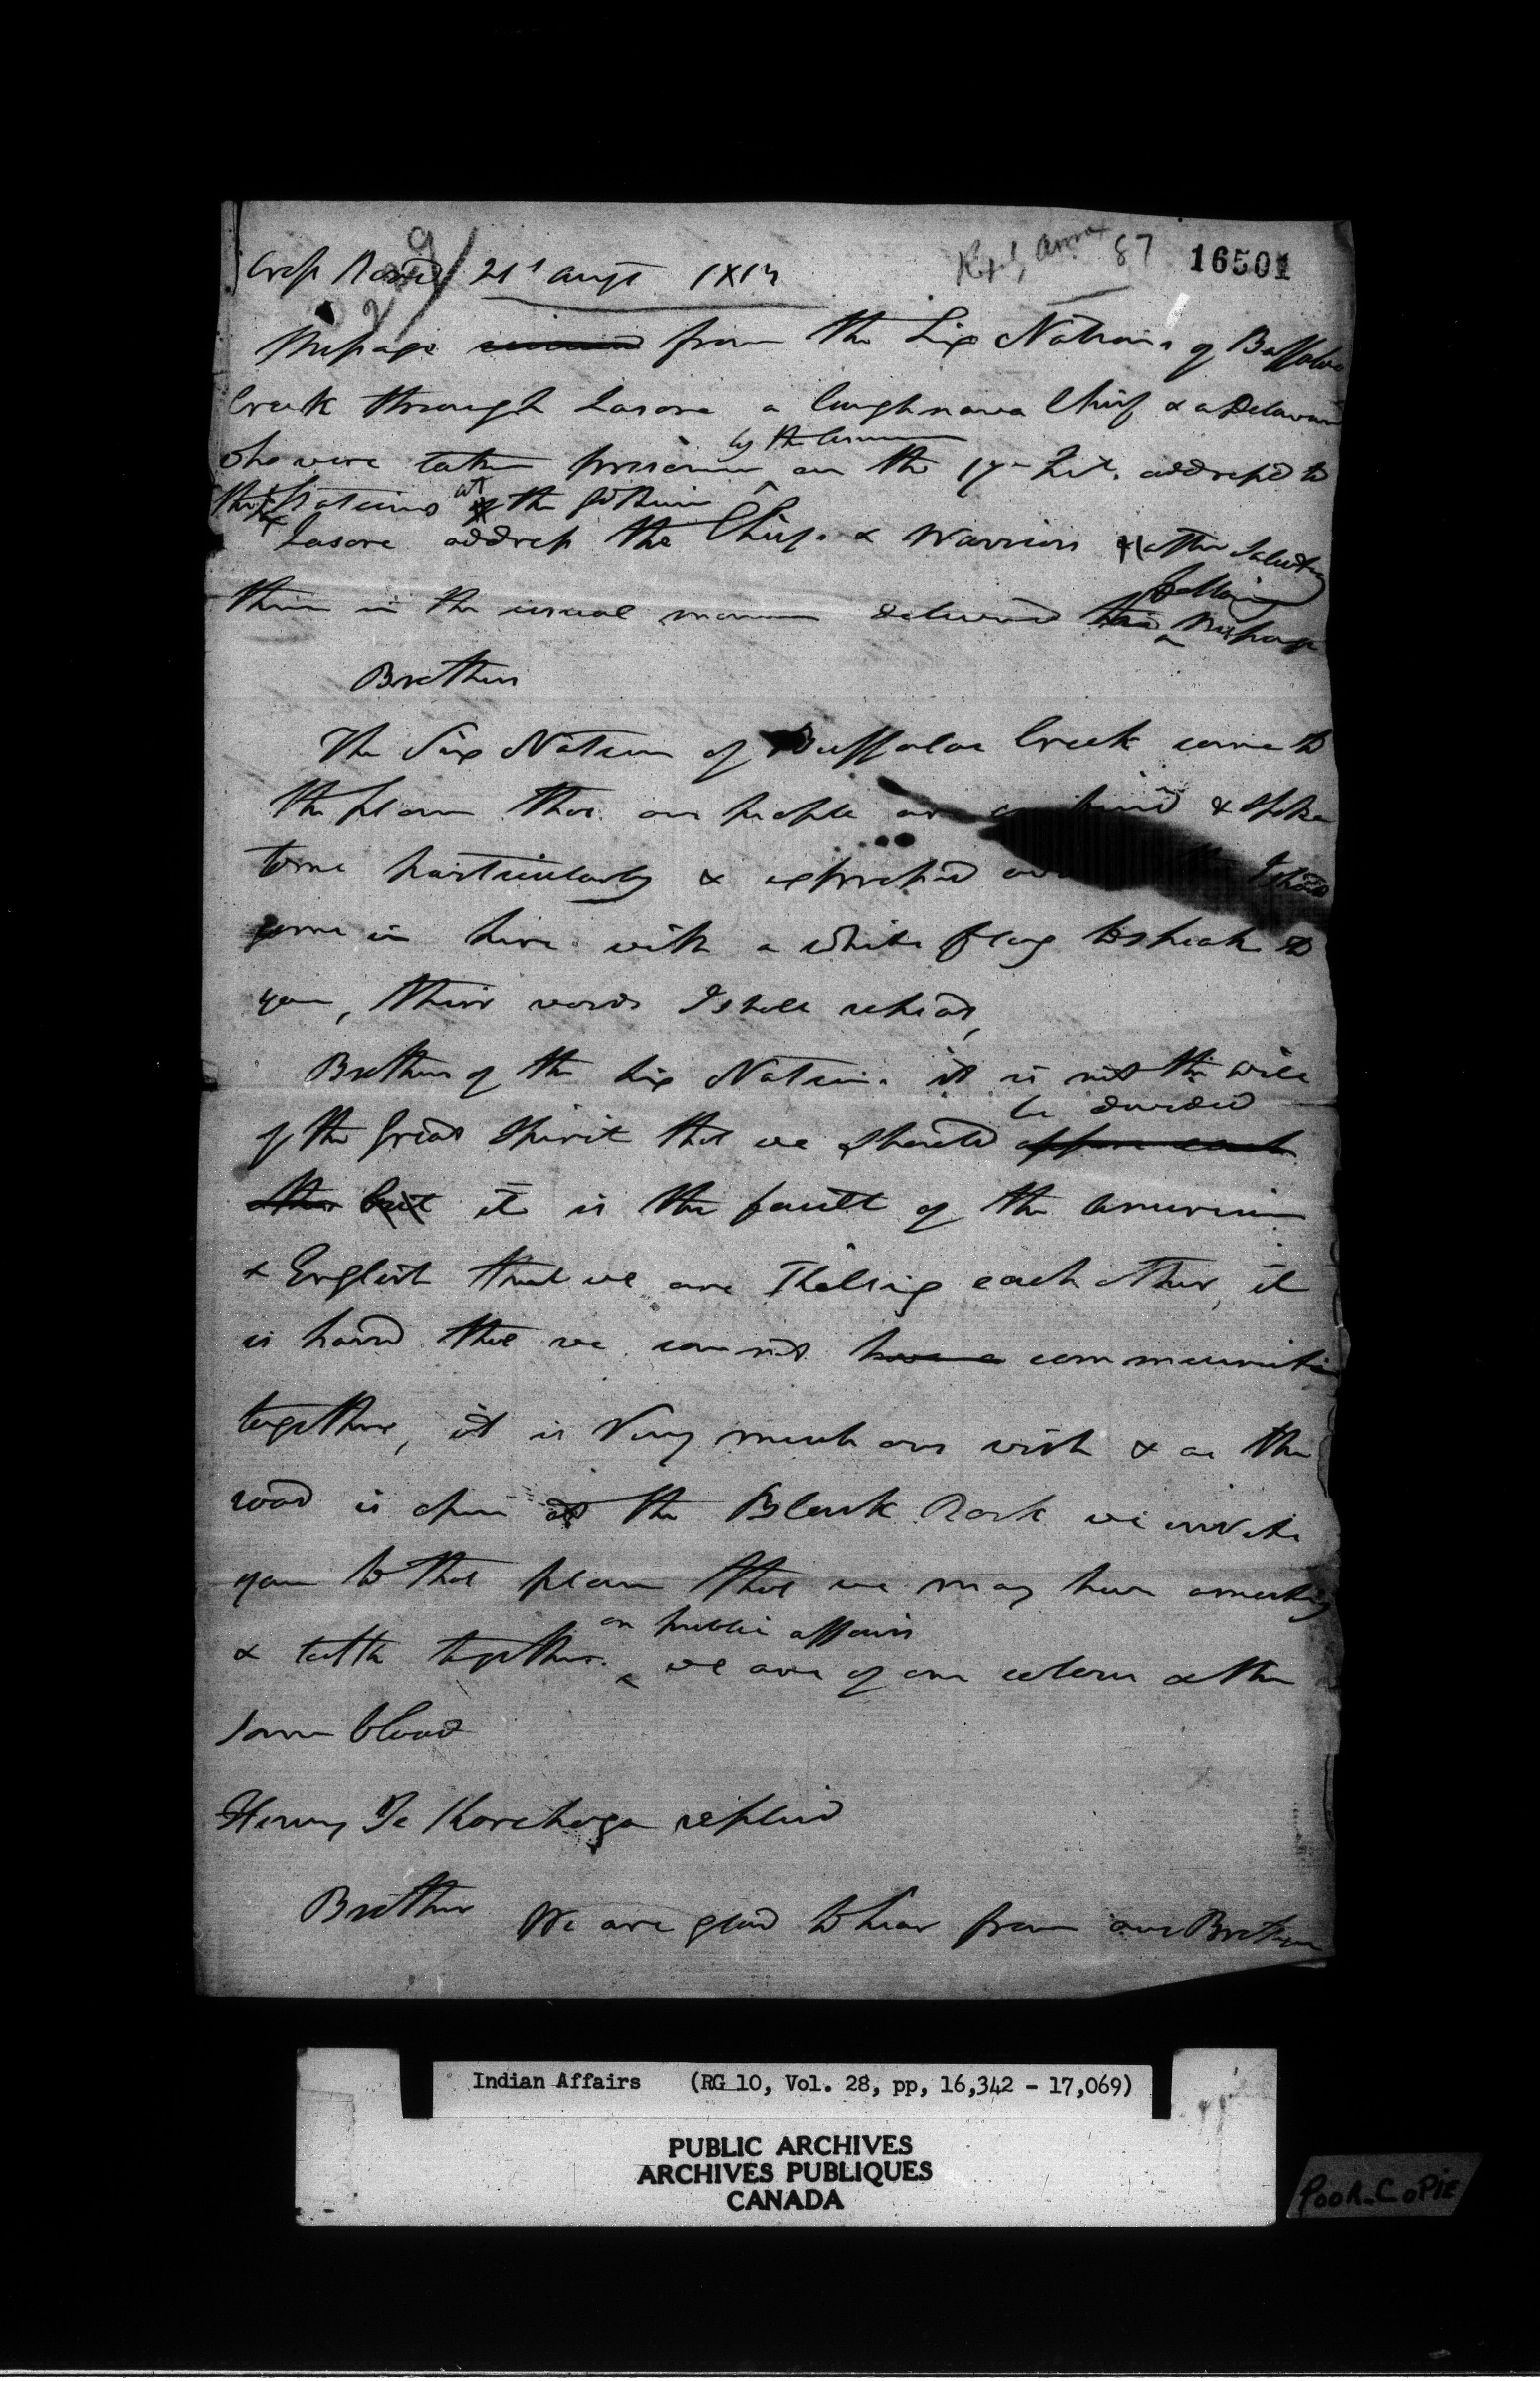 87 16501
Cross Roads 21st Augt 1813
Message from the Six Nations of Buffaloe
Creek through Lasore a Coughnawa Chief & a Delaware
by the
who were taken prisoner on the 17th Int. addressd to
the Nations at the
Lasore address the Chiefs & Warriors after Saluting
them in the usual manner delivered a Message
Brothers
The Six Nations of Buffaloe Creek came to
the place that our people are & spoke
to me particularly & expressed
come in here with a white flag to speak to
you, their words I shall repeat,
Brothers of the Six Nations it is not the will
be divided
of the Great Spirit that we should oppose each
other but it is the fault of the American
& English that we are killing each other, it
is hard that we cannot have communication
together, it is Very much our wish & as the
road is open at the Black Rock we invite
you to that place that we may have a meeting
on public affairs
& talk together we are of one colour & the
same blood
Henry Te Karehoga replied
Brothers We are glad to hear from our Brethren
Indian Affairs (RG 10, Vol. 28, pp, 16,342 - 17,069)
PUBLIC ARCHIVES
ARCHIVES PUBLIQUES
CANADA
POOR COPIE